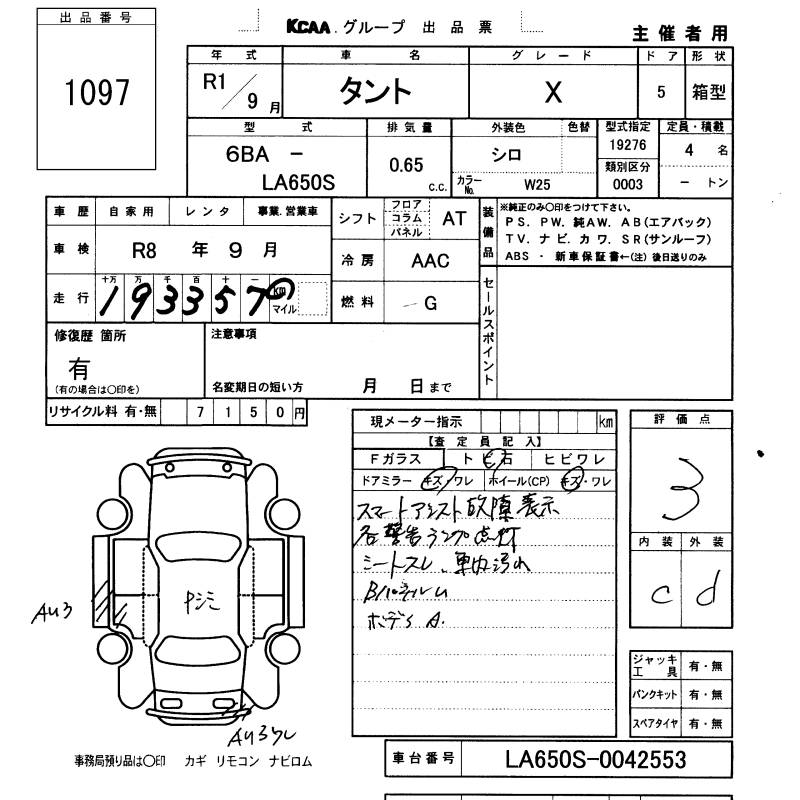 出品番号
1097
KCAA グループ 出品票
主催者用
年式 車名 グレード ドア 形状
R1/9月 タント X 5 箱型
型式 排気量 外装色 色替 型式指定 定員・積載
6BA - LA650S 0.65 C.C. シロ 19276 4 名
カラーNo. W25 類別区分 0003 - トン
車歴 自家用 レンタ 事業.営業車
シフト フロア コラム パネル AT
車検 R8 年 9 月
冷房 AAC
走行 十万 万 千 百 十 一
193357 km マイル
燃料 G
装備品
※純正のみ〇印をつけて下さい。
PS. PW. 純AW. AB(エアバック)
TV. ナビ. カワ. SR(サンルーフ)
ABS ・ 新車保証書←(注) 後日送りのみ
セールスポイント
修復歴 箇所
有
(有の場合は〇印を)
注意事項
名変期日の短い方 月 日まで
リサイクル料 有・無 7150円
現メーター指示 km
【査定員記入】
Fガラス トビ石 ヒビワレ
ドアミラー キズ/ワレ ホイール(CP) キズ・ワレ
スマートアシスト故障表示
各警告ランプ点灯
シートスレ、車内汚れ
Bパネルム
ボディ A.
評価点
3
内装 外装
C d
Pシミ
AU3
AU3ワレ
ジャッキ工具 有・無
パンクキット 有・無
スペアタイヤ 有・無
事務局預り品は〇印 カギ リモコン ナビロム
車台番号 LA650S-0042553